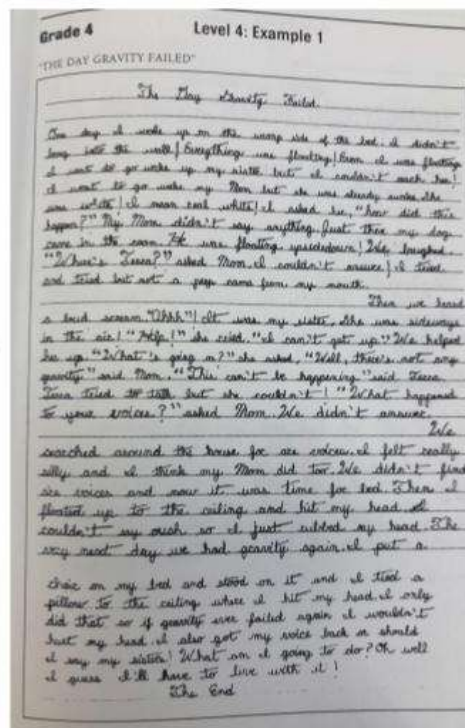 Grade 4
Level 4: Example 1
"THE DAY GRAVITY FAILED"
The Day Gravity Failed
One day I woke up on the wrong side of the bed. I didn't
bang into the wall! Everything was floating! Even I was floating
I went to go wake up my sister but I couldn't reach her!
I went to go wake my Mom but she was already awake. She
was white! I mean cool white! I asked her, "how did this
happen?" My Mom didn't say anything. Just then my dog
came in the room. He was floating upsidedown! We laughed.
"Where's Teera?" asked Mom. I couldn't answer! I tried
and tried but not a peep came from my mouth.
Then we heard
a loud scream. "Ahhh"! It was my sister. She was sideways
in the air! "Help!" she cried. "I can't get up". We helped
her up. "What's going on?" she asked. "Well, there's not any
gravity" said Mom. "This can't be happening" said Teera.
Teera tried to talk but she couldn't! "What happened
to your voices?" asked Mom. We didn't answer.
We
searched around the house for are voices. I felt really
silly and I think my Mom did too. We didn't find
are voices and now it was time for bed. Then I
floated up to the ceiling and hit my head. I
couldn't say ouch so I just rubbed my head. The
very next day we had gravity again. I put a
chair on my bed and stood on it and I tied a
pillow to the ceiling where I hit my head. I only
did that so if gravity ever failed again I wouldn't
hurt my head. I also got my voice back or should
I say my sisters! What am I going to do? Oh well
I guess I'll have to live with it!
The End